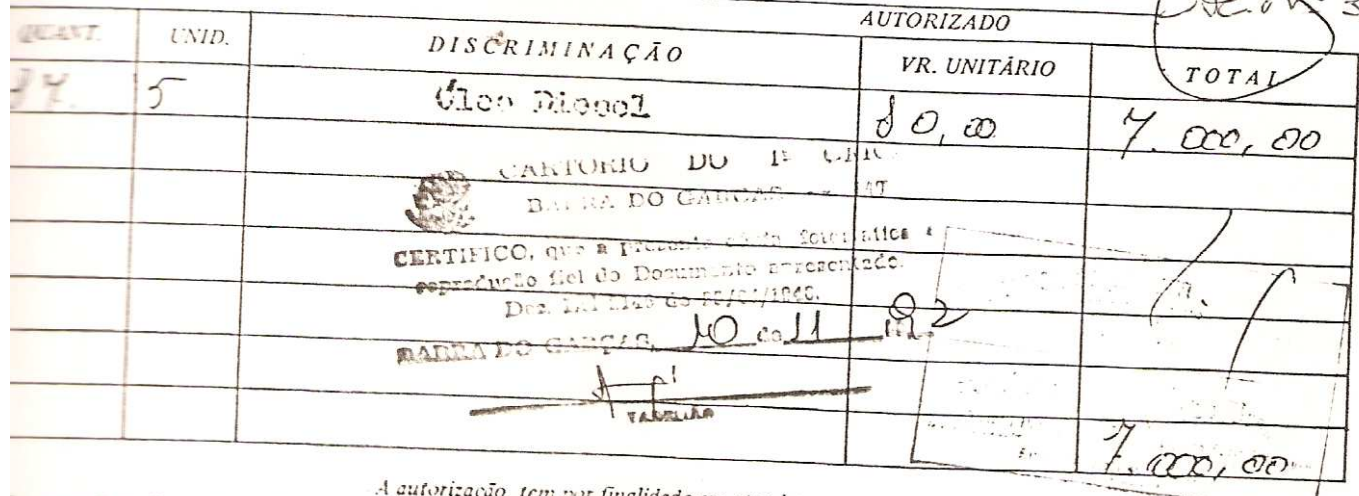 AUTORIZADO
QUANT. UNID. DISCRIMINAÇÃO VR. UNITÁRIO TOTAL
5 Óleo Diesel 80,00 7.000,00
CARTORIO DO 1º
BARRA DO GARÇAS MT
CERTIFICO, que a presente cópia fotostática é
reprodução fiel do Documento apresentado.
BARRA DO GARÇAS, 10 de 11 92
TABELIÃO
7.000,00
A autorização tem por finalidade